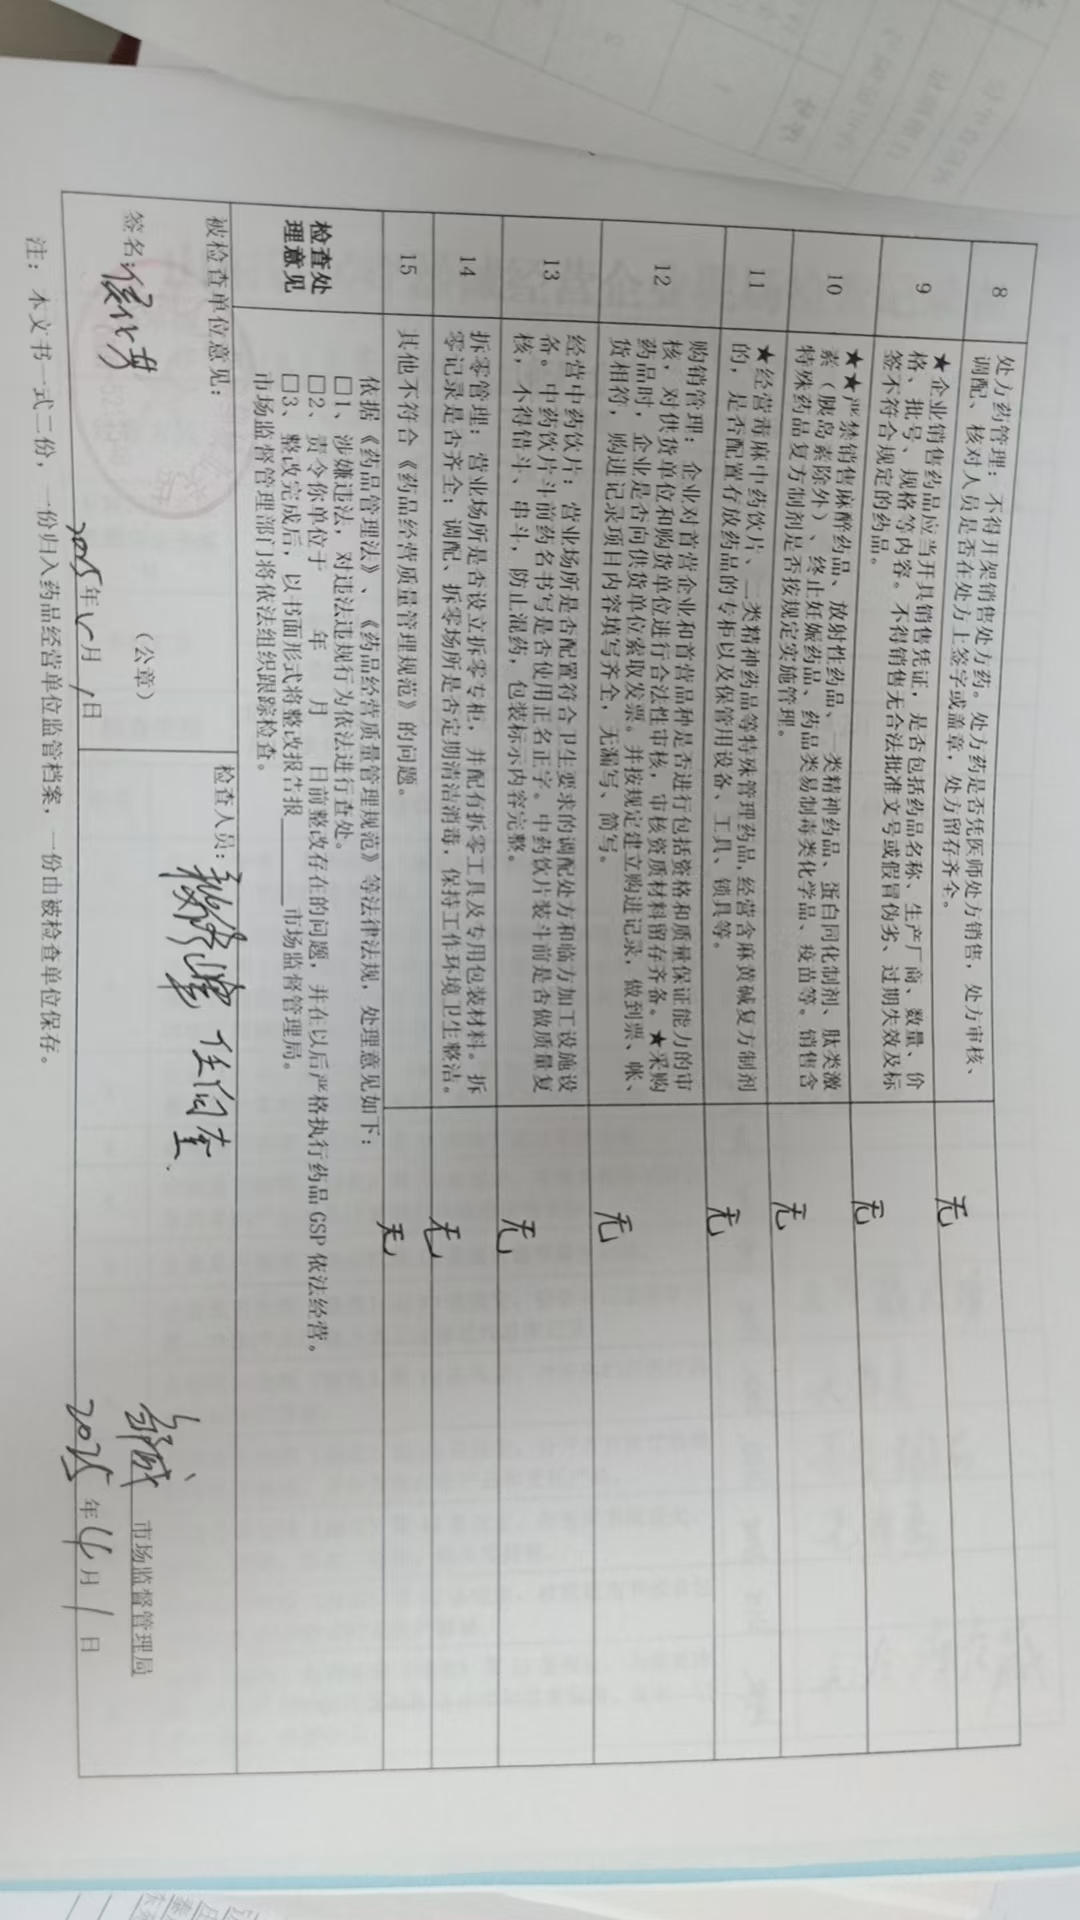 8
处方药管理：不得开架销售处方药。处方药是否凭医师处方销售，处方审核、
调配、核对人员是否在处方上签字或盖章，处方留存齐全。
无
9
★企业销售药品应当开具销售凭证，是否包括药品名称、生产厂商、数量、价
格、批号、规格等内容。不得销售无合法批准文号或假冒伪劣、过期失效及标
签不符合规定的药品。
无
10
★★严禁销售麻醉药品、放射性药品、一类精神药品、蛋白同化制剂、肽类激
素（胰岛素除外）、终止妊娠药品、药品类易制毒类化学品、疫苗等。销售含
特殊药品复方制剂是否按规定实施管理。
无
11
★经营毒麻中药饮片、二类精神药品等特殊管理药品,经营含麻黄碱复方制剂
的，是否配置存放药品的专柜以及保管用设备、工具、锁具等。
无
12
购销管理：企业对首营企业和首营品种是否进行包括资格和质量保证能力的审
核，对供货单位和购货单位进行合法性审核，审核资质材料留存齐备。★采购
药品时，企业是否向供货单位索取发票。并按规定建立购进记录，做到票、帐、
货相符，购进记录项目内容填写齐全，无漏写、简写。
无
13
经营中药饮片：营业场所是否配置符合卫生要求的调配处方和临方加工设施设
备。中药饮片斗前药名书写是否使用正名正字。中药饮片装斗前是否做质量复
核，不得错斗、串斗，防止混药，包装标示内容完整。
无
14
拆零管理：营业场所是否设立拆零专柜，并配有拆零工具及专用包装材料。拆
零记录是否齐全；调配、拆零场所是否定期清洁消毒，保持工作环境卫生整洁。
无
15
其他不符合《药品经营质量管理规范》的问题。
无
检查处
理意见
依据《药品管理法》、《药品经营质量管理规范》等法律法规，处理意见如下：
□1、涉嫌违法，对违法违规行为依法进行查处。
□2、责令你单位于 年 月 日前整改存在的问题，并在以后严格执行药品 GSP 依法经营。
□3、整改完成后，以书面形式将整改报告报____市场监督管理局。
市场监督管理部门将依法组织跟踪检查。
被检查单位意见：
签名:
（公章）
2025年 月 1日
检查人员：
邹城 市场监督管理局
2025 年 4 月 1 日
注：本文书一式二份，一份归入药品经营单位监管档案，一份由被检查单位保存。